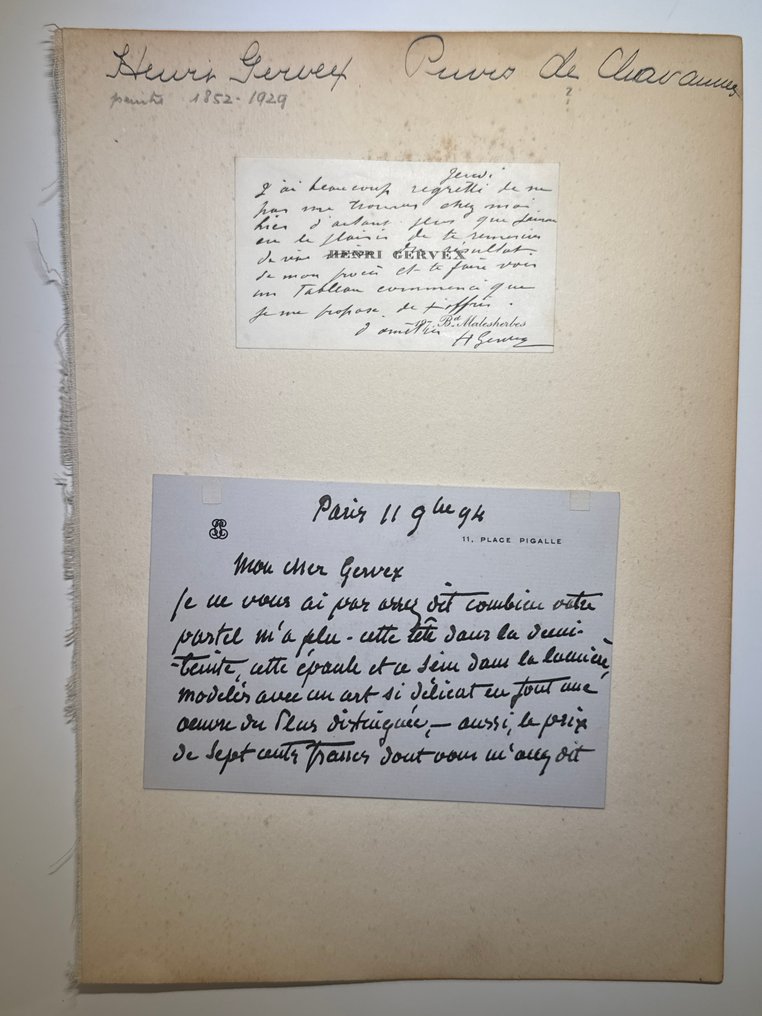 Henri Gervex Puvis de Chavannes
peintre 1852-1929 ?
Jeudi
J'ai beaucoup regretté de ne
pas me trouver chez moi
hier d'autant plus que j'aurais
eu le plaisir de te remercier
de vive du résultat
HENRI GERVEX
de mon procès et te faire voir
un tableau commencé que
je me propose de t'offrir.
Bd. Malesherbes
H Gervex
Paris 11 9bre 94
11, PLACE PIGALLE
Mon cher Gervex
Je ne vous ai pas assez dit combien votre
pastel m'a plu - cette tête dans la demi-
-teinte, cette épaule et ce sein dans la lumière,
modelés avec un art si délicat en font une
oeuvre des plus distinguée, - aussi, le prix
de Sept cents francs dont vous m'avez dit